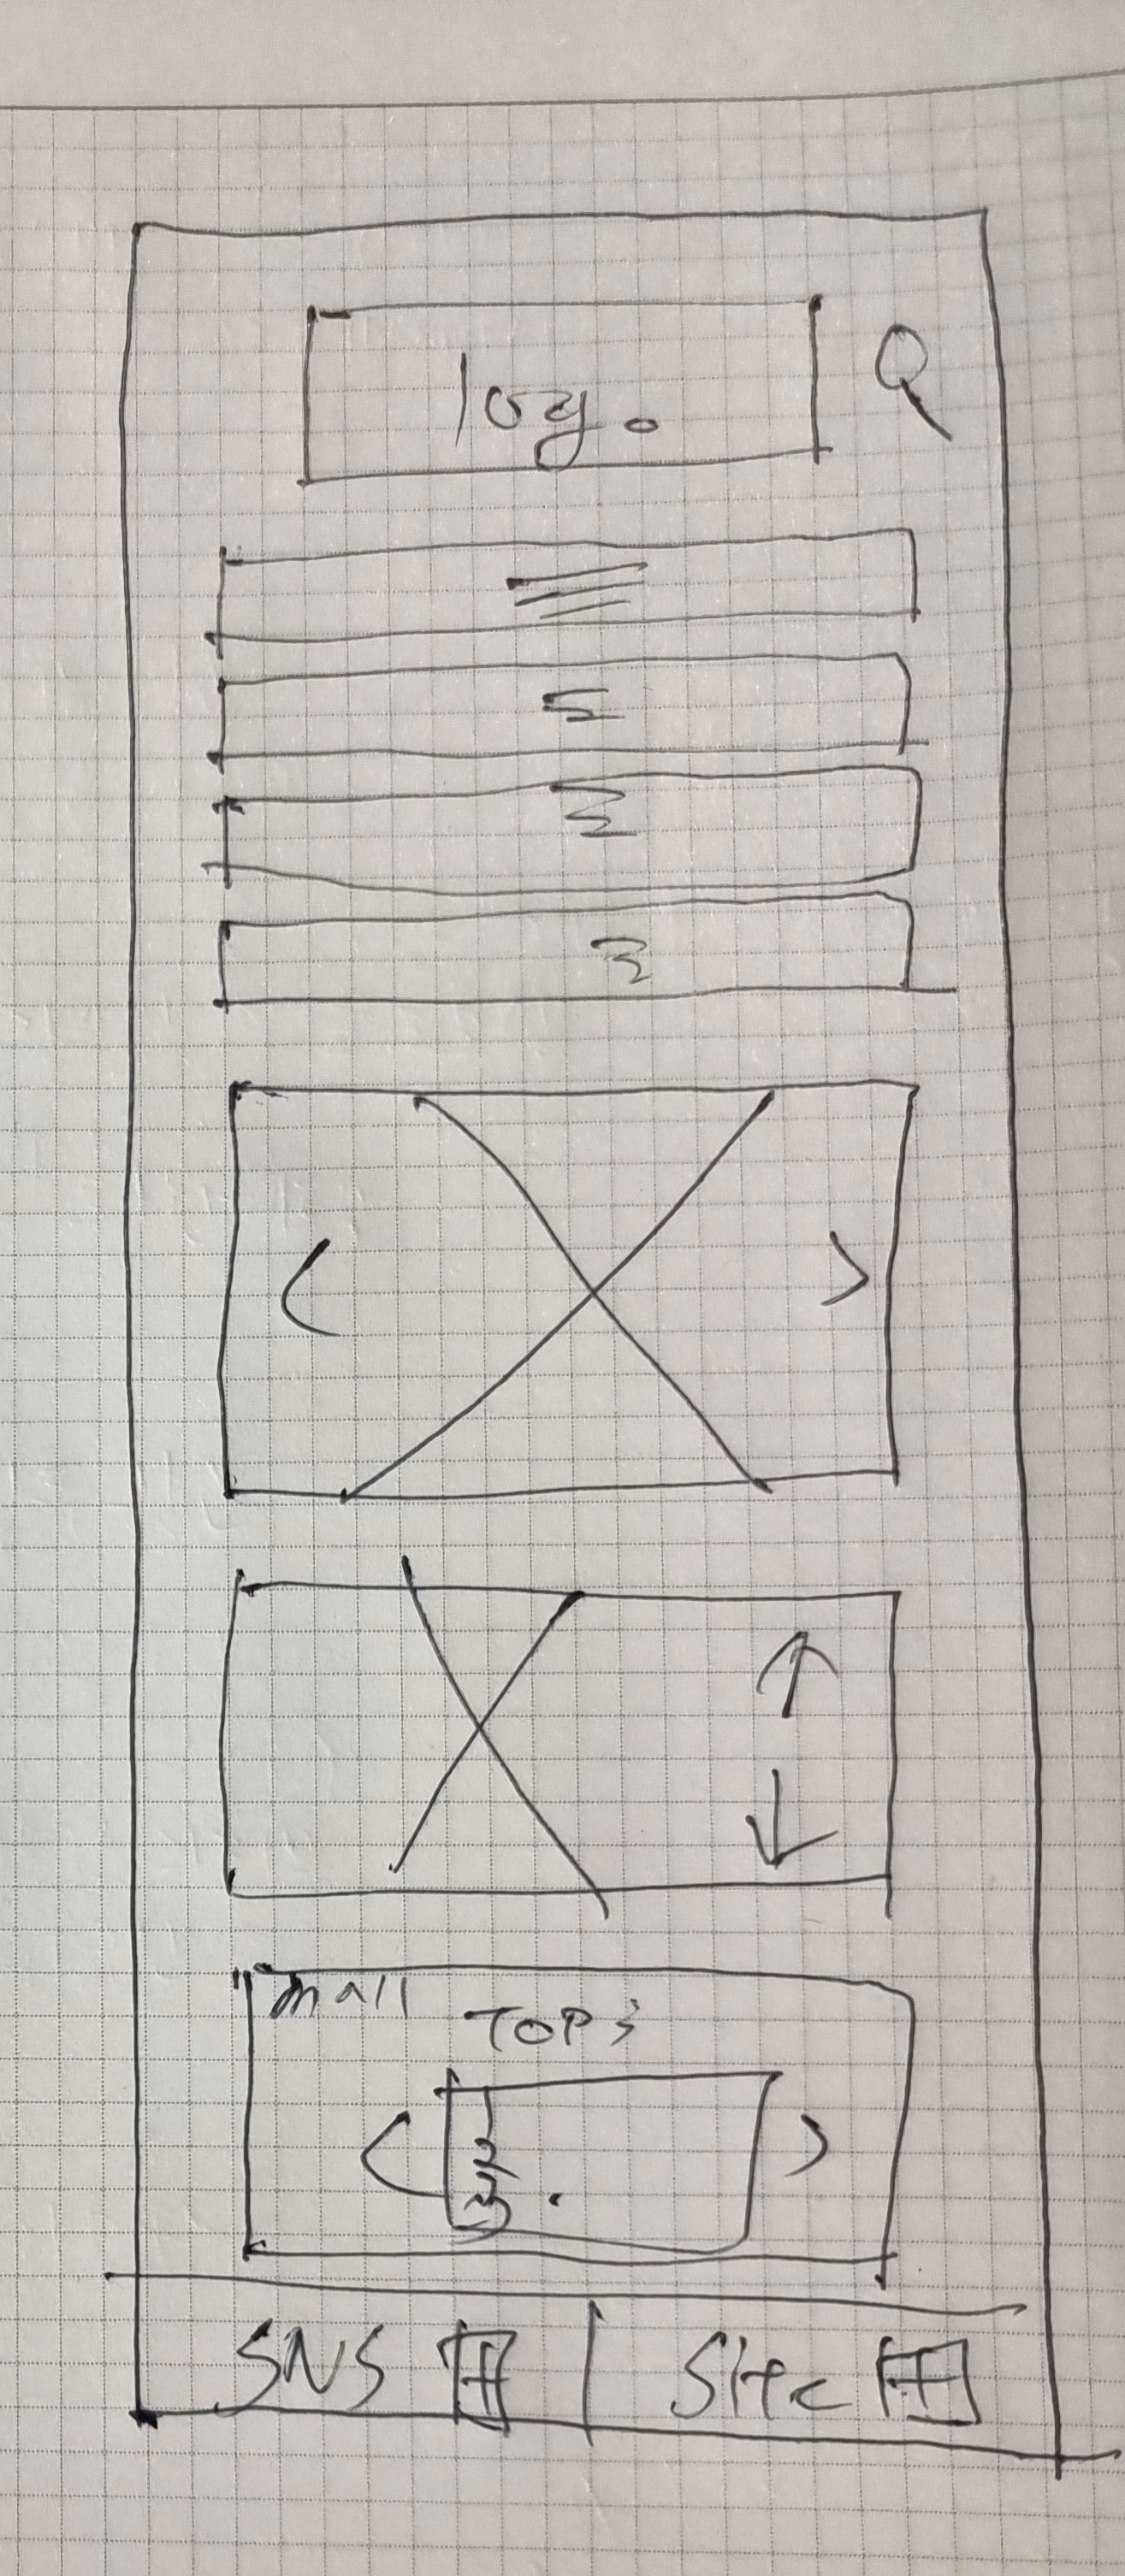 logo
mall
TOP 3
1
2
3
SNS
Site